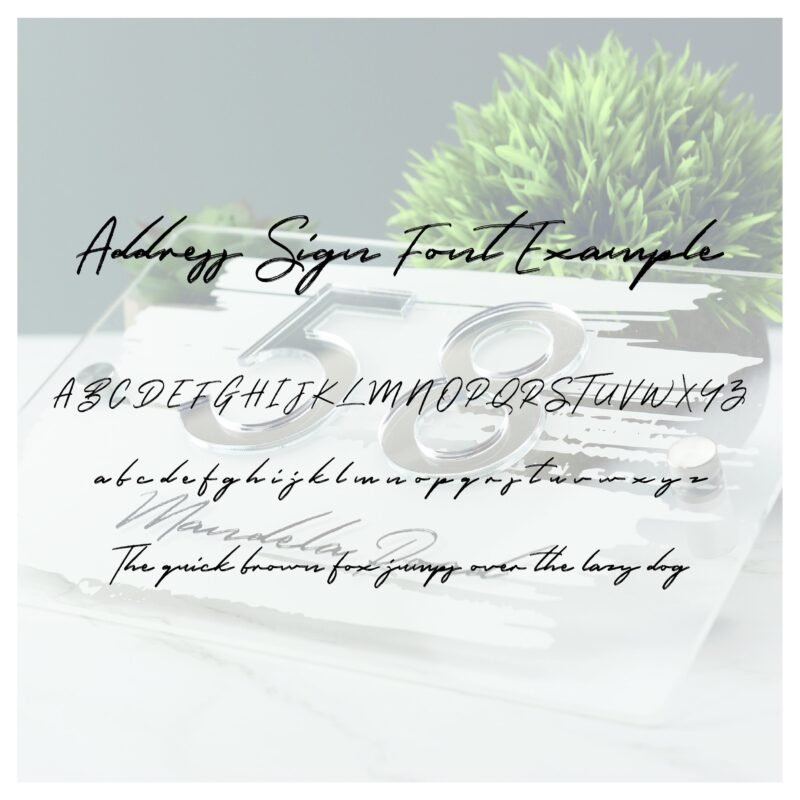 Address Sign Font Example
58
ABCDEFGHIJKLMNOPQRSTUVWXYZ
abcdefghijklmnopqrstuvwxyz
Mandela Road
The quick brown fox jumps over the lazy dog